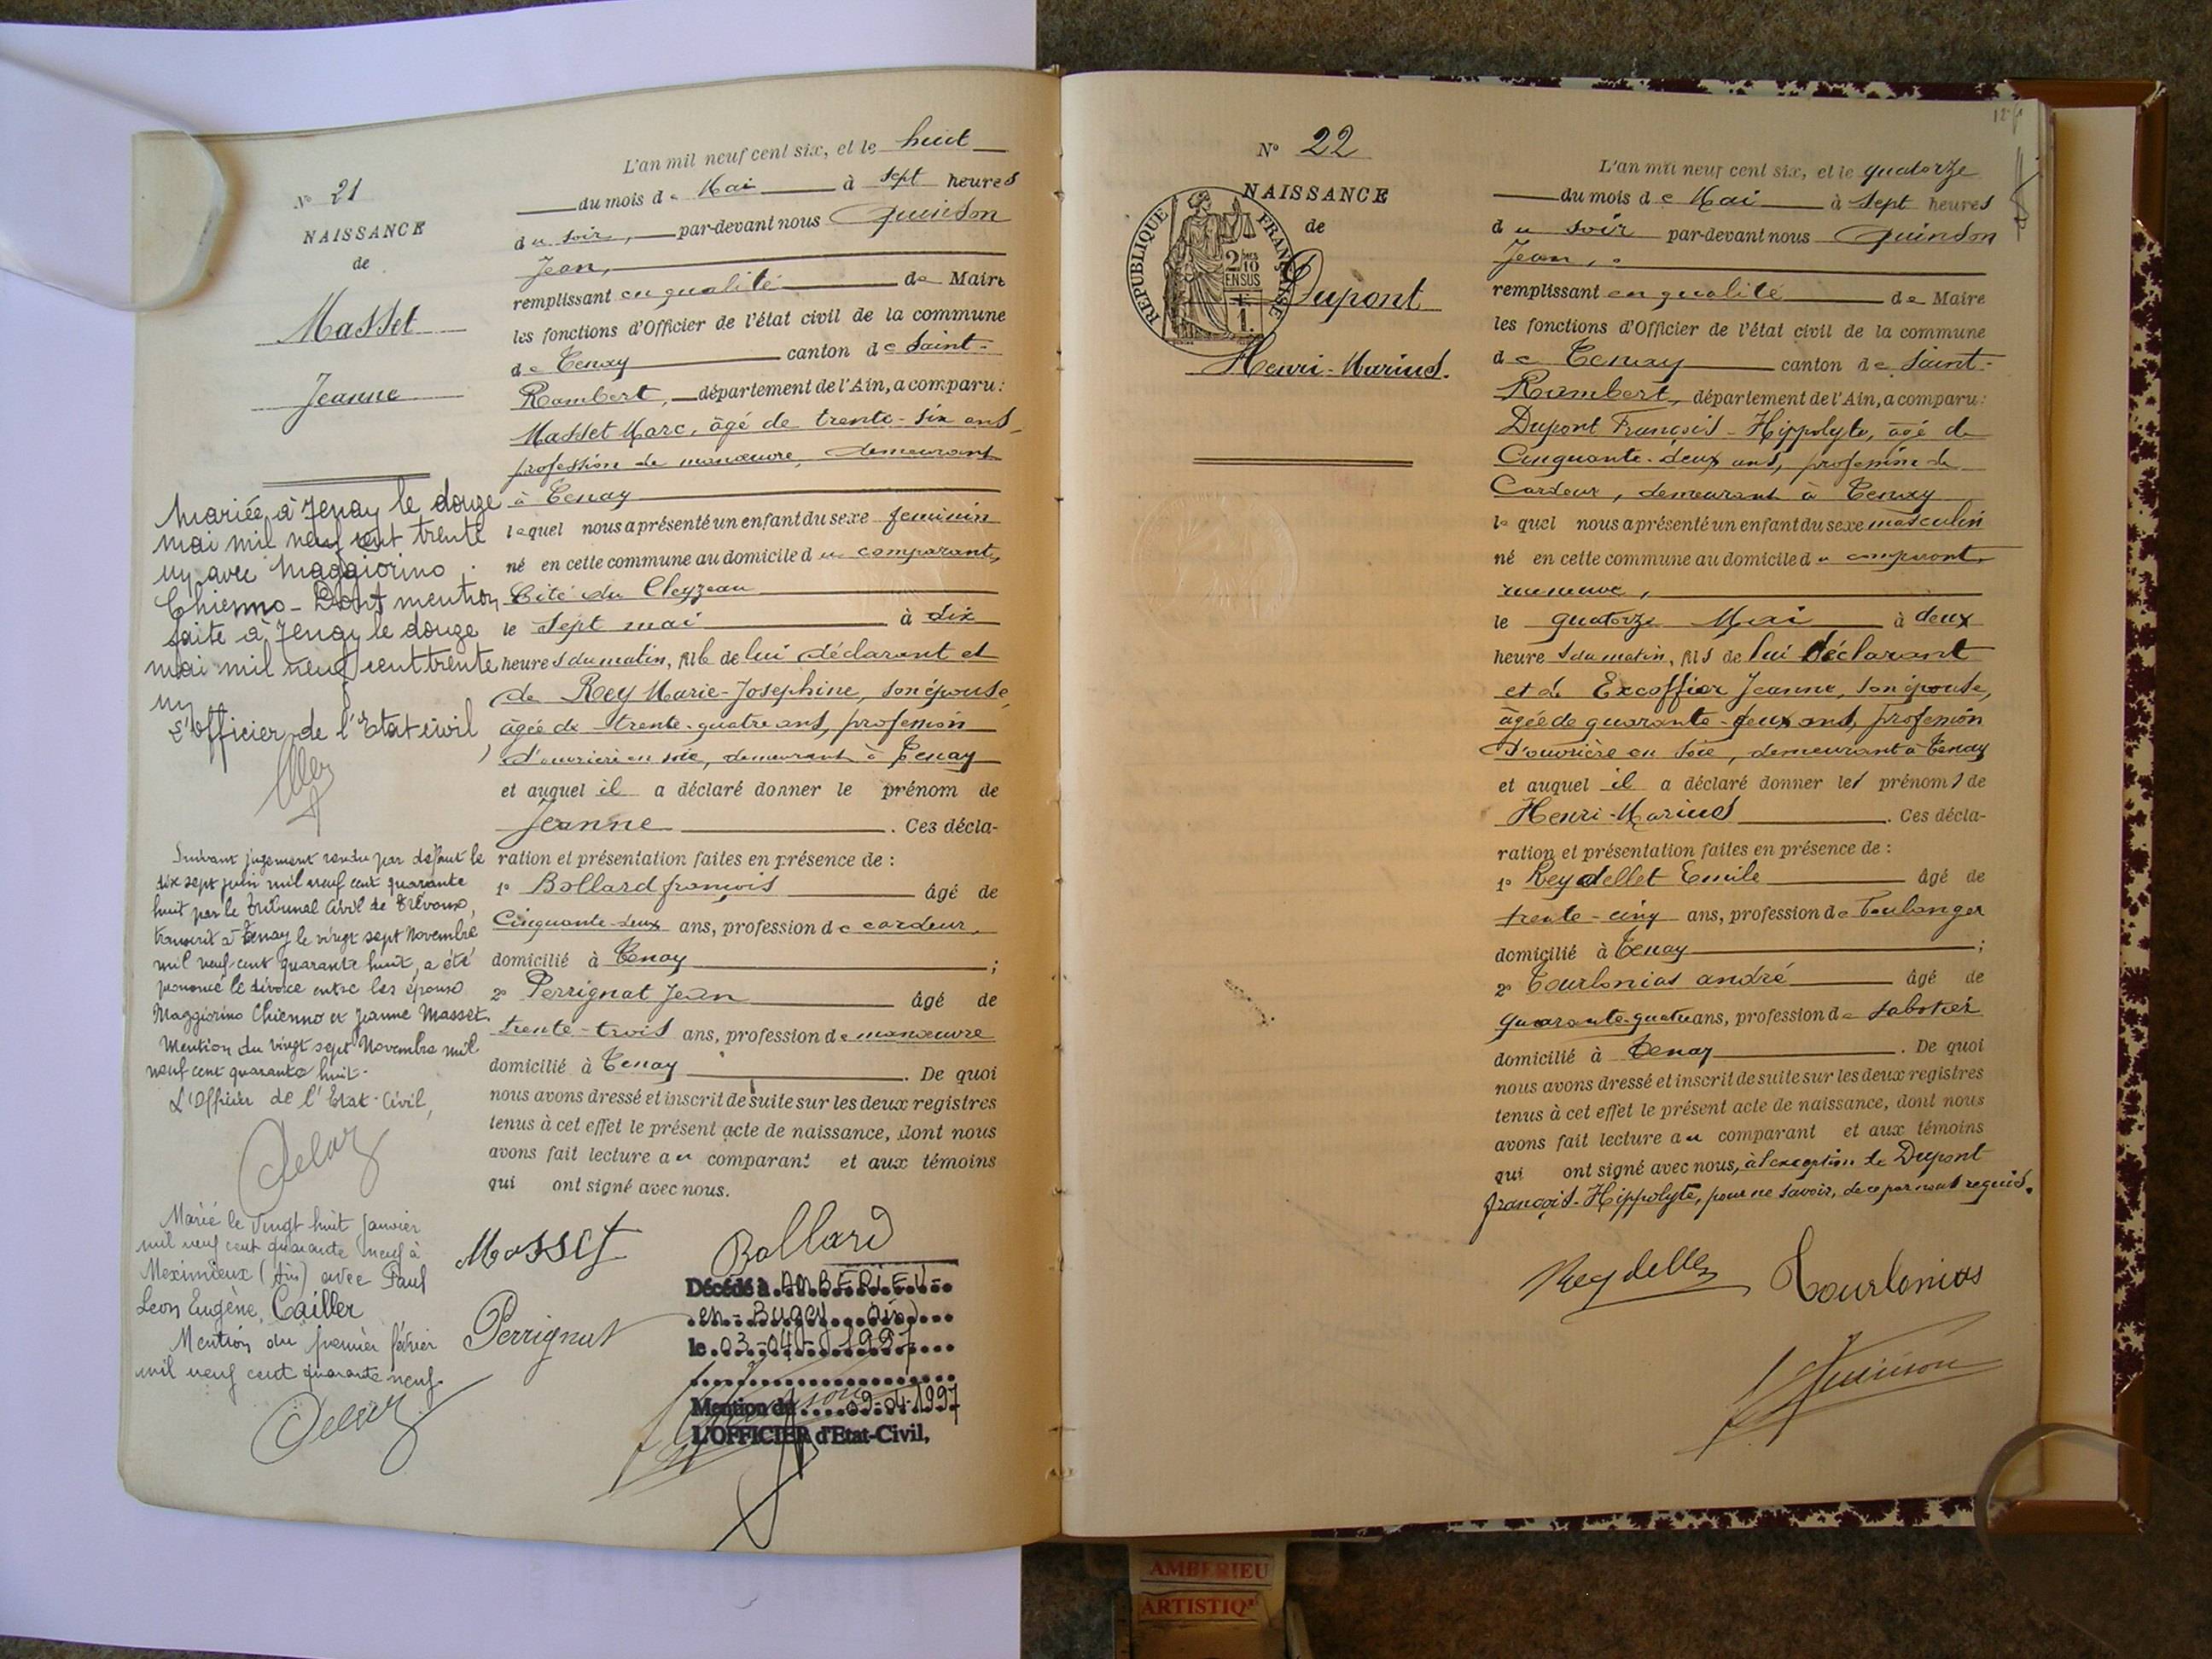 N° 21
NAISSANCE
de
Masset
Jeanne
Mariée à Tenay le douze
mai mil neuf cent trente
un avec Maggiorino
Chienno - Dont mention
faite à Tenay le douze
mai mil neuf cent trente
un
L'officier de l'Etat civil
Suivant jugement rendu par défaut le
dix sept juin mil neuf cent quarante
huit par le Tribunal Civil de Trévoux,
transcrit à Tenay le vingt sept Novembre
mil neuf cent quarante huit, a été
prononcé le divorce entre les époux
Maggiorino Chienno et Jeanne Masset.
Mention du vingt sept Novembre mil
neuf cent quarante huit.
L'Officier de l'Etat-Civil,
Marié le vingt huit janvier
mil neuf cent quarante neuf à
Meximieux (Ain) avec Paul
Léon Eugène Cailler
Mention du premier février
mil neuf cent quarante neuf.
L'an mil neuf cent six, et le huit
du mois de Mai à sept heures
du soir, par-devant nous Quinson
Jean,
remplissant en qualité de Maire
les fonctions d'Officier de l'état civil de la commune
de Tenay canton de Saint-
Rambert, département de l'Ain, a comparu:
Masset Marc, âgé de trente-six ans,
profession de manœuvre, demeurant
à Tenay
lequel nous a présenté un enfant du sexe feminin
né en cette commune au domicile du comparant,
Cité du Cleyzeau
le sept mai à dix
heures du matin, fille de lui déclarant et
de Rey Marie-Josephine, son épouse,
âgée de trente-quatre ans, profession
d'ouvrière en soie, demeurant à Tenay
et auquel il a déclaré donner le prénom de
Jeanne. Ces décla-
ration et présentation faites en présence de :
1° Ballard françois âgé de
Cinquante-deux ans, profession de cardeur,
domicilié à Tenay ;
2° Perrignat Jean âgé de
trente-trois ans, profession de manœuvre
domicilié à Tenay. De quoi
nous avons dressé et inscrit de suite sur les deux registres
tenus à cet effet le présent acte de naissance, dont nous
avons fait lecture au comparant et aux témoins
qui ont signé avec nous.
Masset Ballard
Perrignat
Décédé à AMBERIEU-
en-Bugey (Ain)
le 03-04-1997
Mention du 09-04-1997
L'OFFICIER d'Etat-Civil,
N° 22
NAISSANCE
de
REPUBLIQUE FRANÇAISE
2/10
EN SUS
1
Dupont
Henri-Marius.
L'an mil neuf cent six, et le quatorze
du mois de Mai à sept heures
du soir par-devant nous Quinson
Jean,
remplissant en qualité de Maire
les fonctions d'Officier de l'état civil de la commune
de Tenay canton de Saint-
Rambert, département de l'Ain, a comparu:
Dupont François-Hippolyte, âgé de
Cinquante-deux ans, profession de
Cardeur, demeurant à Tenay
lequel nous a présenté un enfant du sexe masculin
né en cette commune au domicile du comparant,
rue neuve,
le quatorze Mai à deux
heures du matin, fils de lui déclarant
et de Excoffier Jeanne, son épouse,
âgée de quarante-deux ans, profession
d'ouvrière en soie, demeurant à Tenay
et auquel il a déclaré donner les prénoms de
Henri-Marius. Ces décla-
ration et présentation faites en présence de :
1° Reydellet Emile âgé de
trente-cinq ans, profession de boulanger
domicilié à Tenay ;
2° Tourlonias andré âgé de
quarante-quatre ans, profession de sabotier
domicilié à Tenay. De quoi
nous avons dressé et inscrit de suite sur les deux registres
tenus à cet effet le présent acte de naissance, dont nous
avons fait lecture au comparant et aux témoins
qui ont signé avec nous, à l'exception de Dupont
françois-Hippolyte, pour ne savoir, de ce par nous requis.
Reydellet Tourlonias
Quinson
AMBERIEU
ARTISTIQ